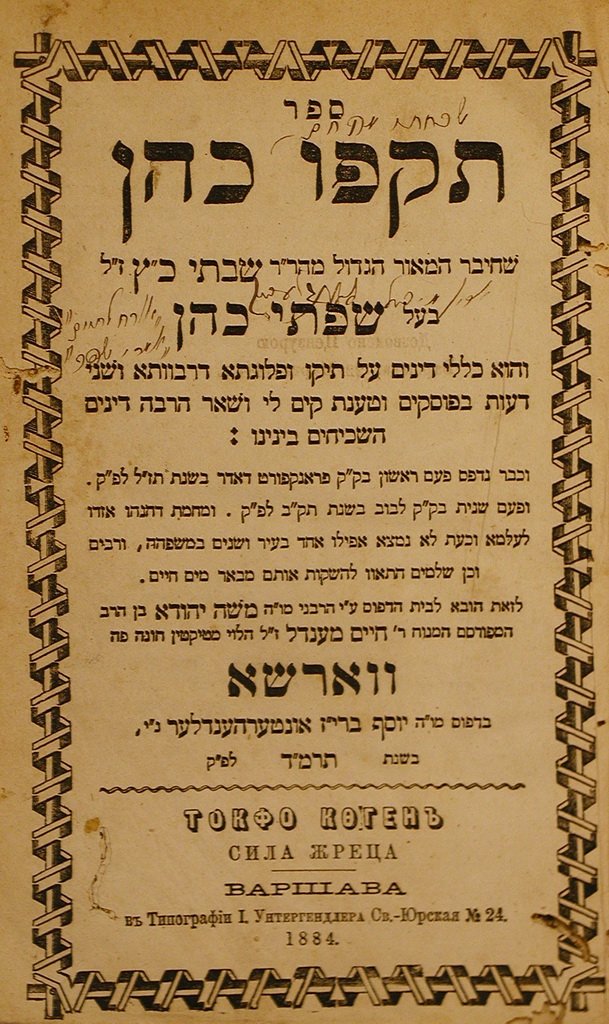 ספר
תקפו כהן
שחיבר המאור הגדול מהר״ר שבתי כ״ץ ז״ל
בעל שפתי כהן
והוא כללי דינים על תיקו ופלוגתא דרבוותא ושני
דעות בפוסקים וטענת קים לי ושאר הרבה דינים
השכיחים בינינו :
וכבר נדפס פעם ראשון בק״ק פראנקפורט דאדר בשנת תז״ל לפ״ק .
ופעם שנית בק״ק לבוב בשנת תק״ב לפ״ק . ומחמת דהנהו אזדו
לעלמא וכעת לא נמצא אפילו אחד בעיר ושנים במשפחה, ורבים
וכן שלמים התאוו להשקות אותם מבאר מים חיים .
לזאת הובא לבית הדפוס ע״י הרבני מו״ה משה יהודא בן הרב
המפורסם המנוח ר׳ חיים מענדל ז״ל הלוי מטיקטין חונה פה
ווארשא
בדפוס מו״ה יוסף ברי״ז אונטערהענדלער נ״י,
בשנת תרמ״ד לפ״ק
ТОКФО КОГЕНЪ
СИЛА ЖРЕЦА
ВАРШАВА
въ Типографіи І. Унтергендлера Св.-Юрская № 24.
1884.